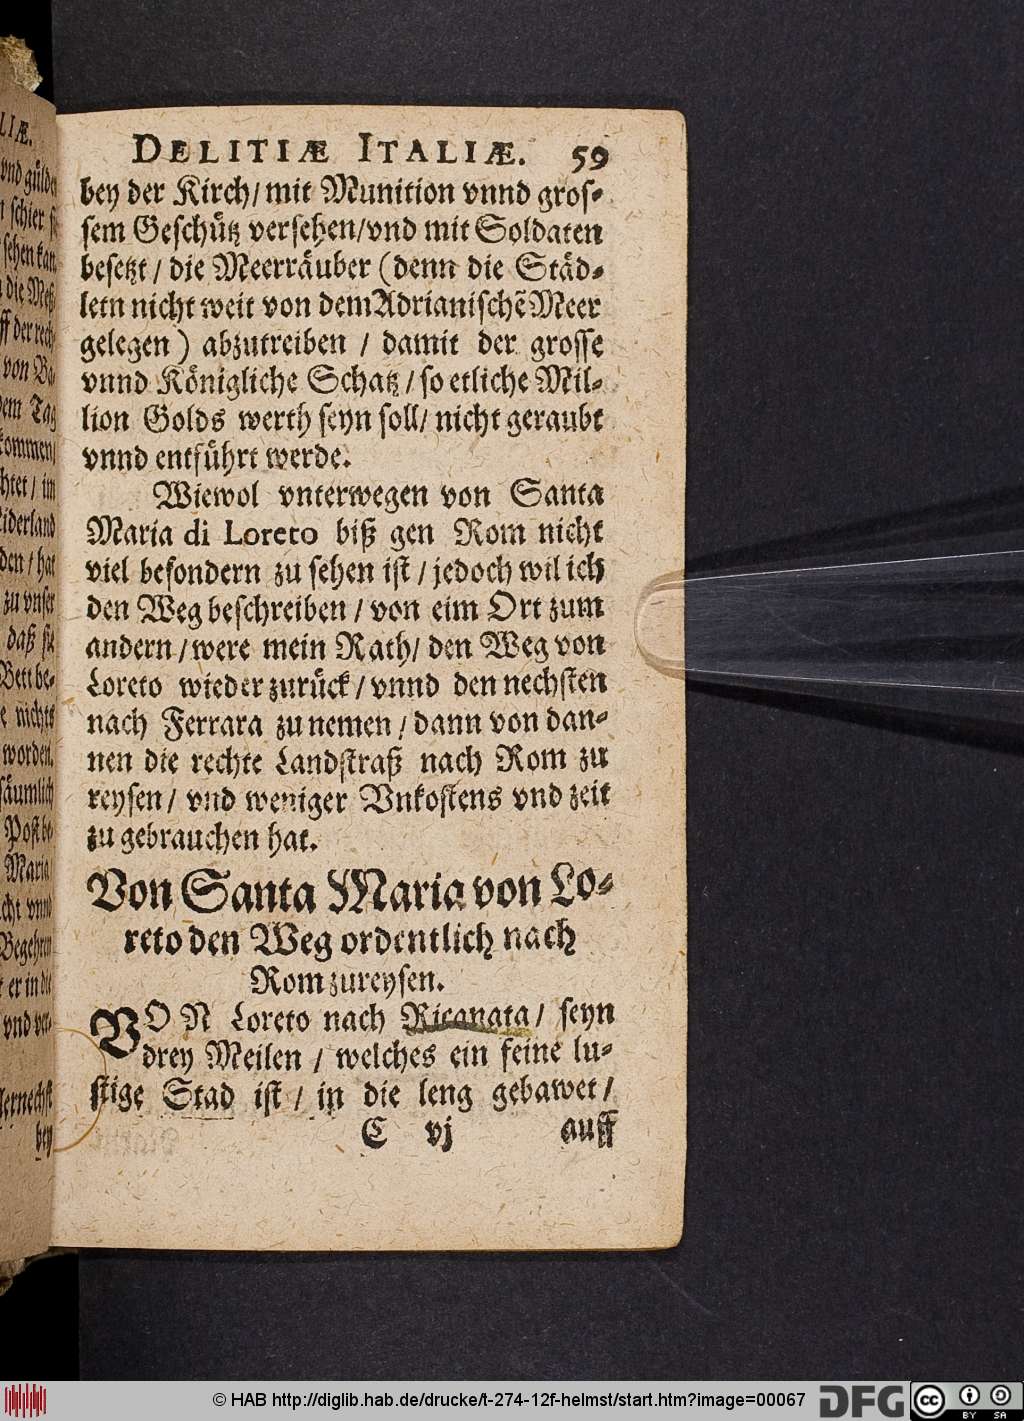 DELITIÆ ITALIÆ. 59
bey der Kirch/ mit Munition vnnd gros-
sem Geschütz versehen/ vnd mit Soldaten
besetzt / die Meerräuber (denn die Städ-
letn nicht weit von dem Adrianischẽ Meer
gelegen) abzutreiben / damit der grosse
vnnd Königliche Schatz / so etliche Mil-
lion Golds werth seyn soll/ nicht geraubt
vnnd entführt werde.
Wiewol vnterwegen von Santa
Maria di Loreto biß gen Rom nicht
viel besondern zu sehen ist / jedoch wil ich
den Weg beschreiben / von eim Ort zum
andern / were mein Rath/ den Weg von
Loreto wieder zurück / vnnd den nechsten
nach Ferrara zu nemen / dann von dan-
nen die rechte Landstraß nach Rom zu
reysen / vnd weniger Vnkostens vnd zeit
zu gebrauchen hat.
Von Santa Maria von Lo-
reto den Weg ordentlich nach
Rom zureysen.
VON Loreto nach Ricanata / seyn
drey Meilen / welches ein feine lu-
stige Stad ist / in die leng gebawet /
C vj auff
LIÆ.
vnd gülden
schier
sehen kan.
die Meß
ff der rech
von Ba-
dem Tag
kommen/
htet / im
iderland
den / hat
zu vnser
daß sie
Bett be-
e nichts
worden.
säumlich
Post be-
Maria
cht vnnd
Begehren
t er in die
vnd ver-
llernechst
bey
© HAB http://diglib.hab.de/drucke/t-274-12f-helmst/start.htm?image=00067 DFG cc BY SA